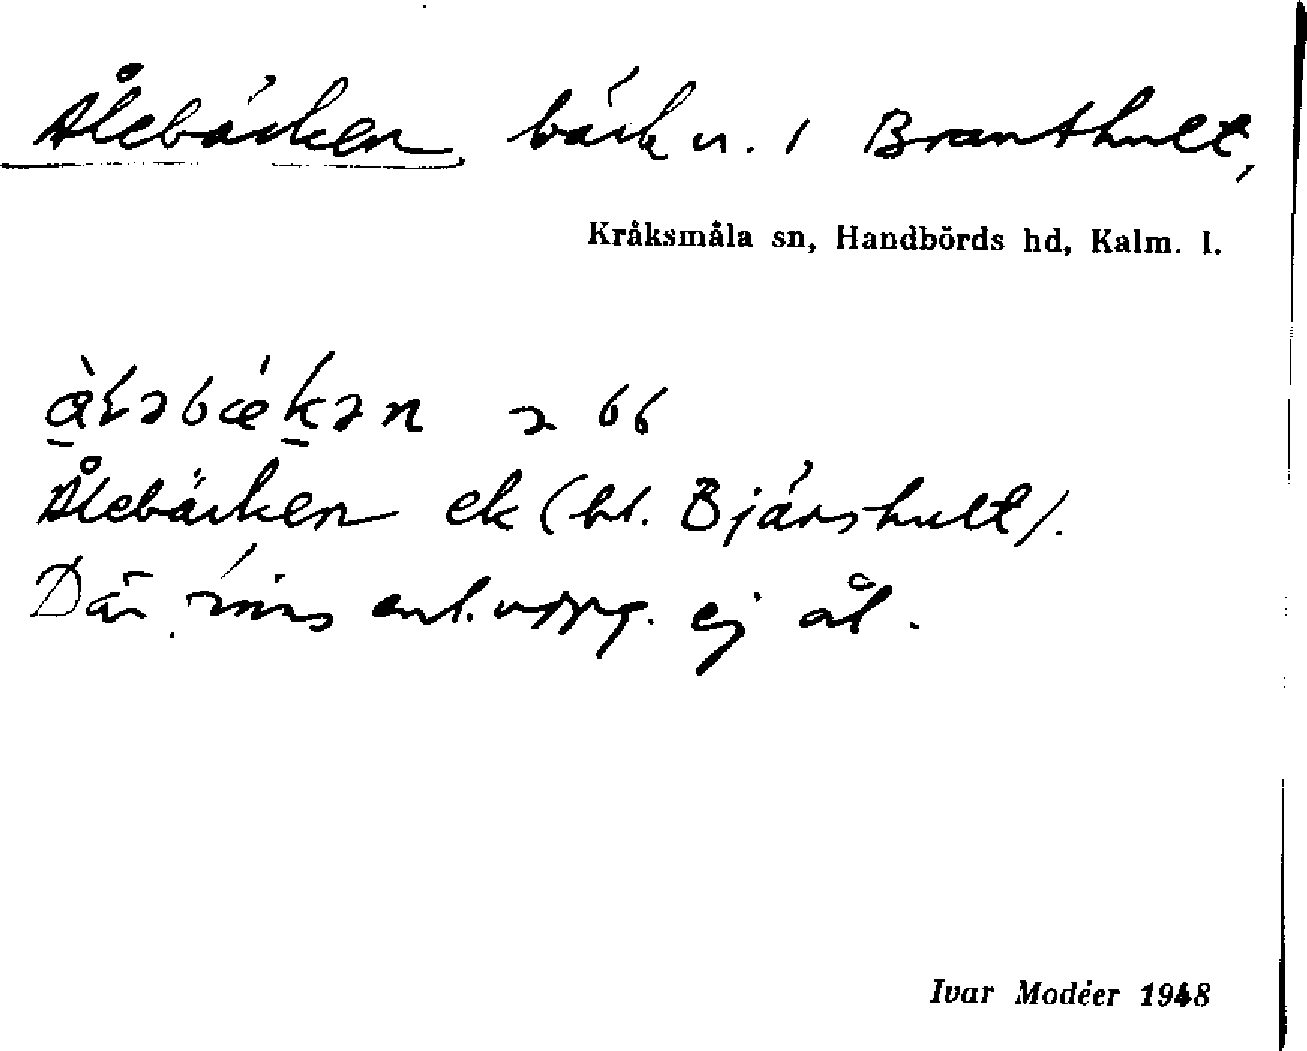 Ålebäcken bäck n. i Branthult,
Kråksmåla sn, Handbörds hd, Kalm. l.
Ålebäcken ek (bl. Bjärshult).
Där finns enl. uppg. ej ål.
Ivar Modéer 1948